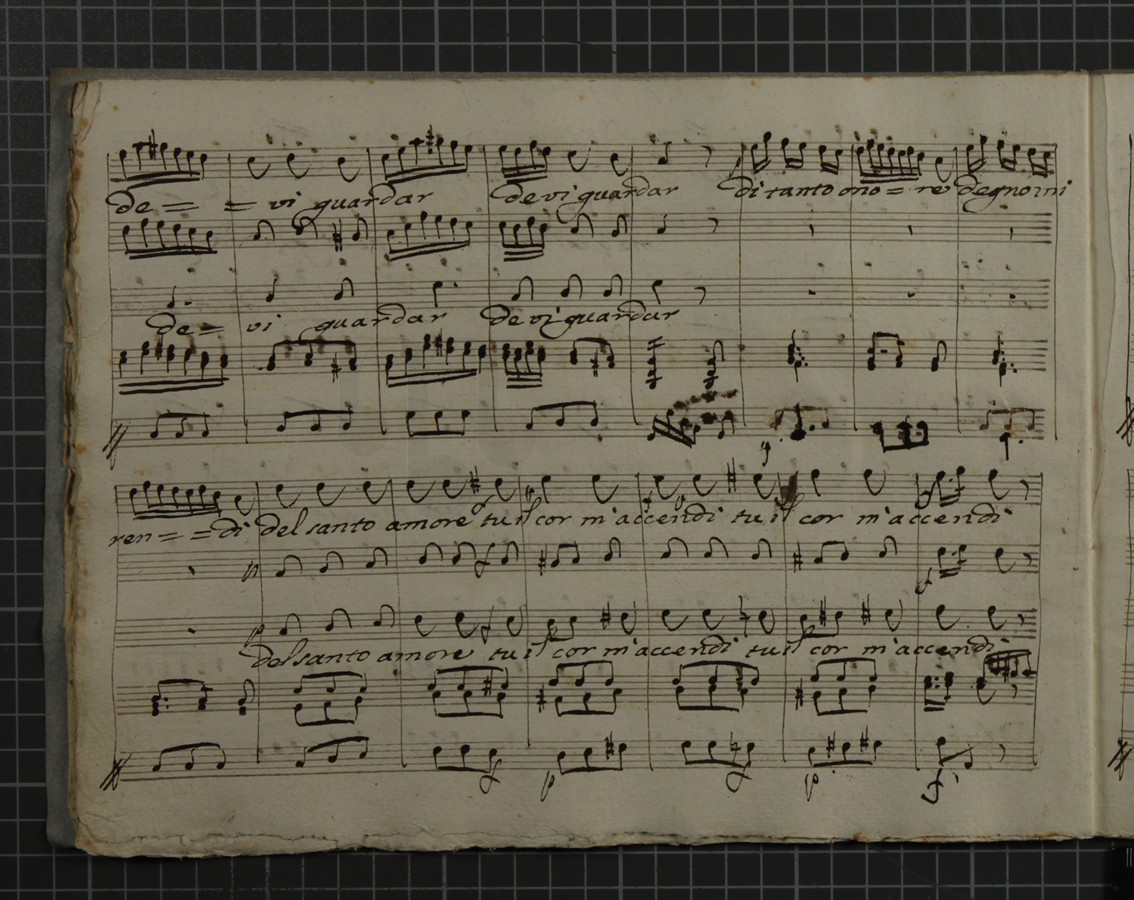 de = = vi guardar devi guardar di tanto ono = re degnomi
de = vi guardar devi guardar
ren = = di del santo amore tu il cor m'accendi tu il cor m'accendi
del santo amore tu il cor m'accendi tu il cor m'accendi